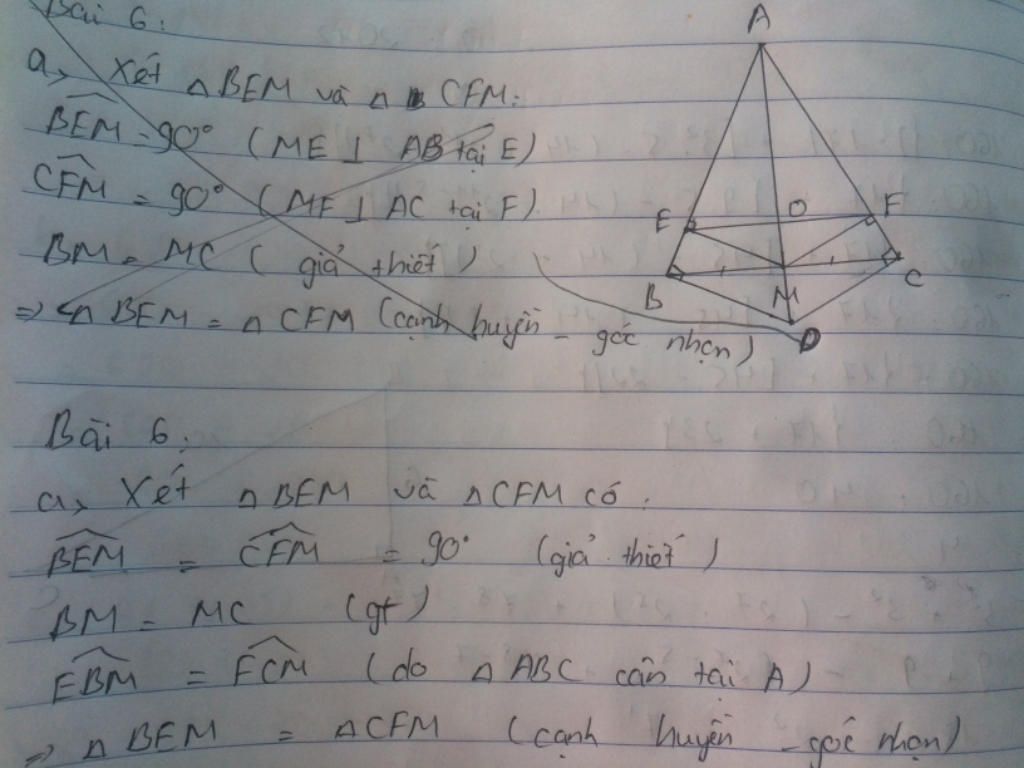 Bài 6:
a, Xét △BEM và △ CFM:
BEM = 90° (ME ⊥ AB tại E)
CFM = 90° (MF ⊥ AC tại F)
BM = MC ( giả thiết )
=> △ BEM = △ CFM (cạnh huyền - góc nhọn)
A
E
O
F
B
M
C
D
Bài 6:
a, Xét △BEM và △CFM có:
BEM = CFM = 90° (giả thiết)
BM = MC (gt)
EBM = FCM (do △ ABC cân tại A)
=> △ BEM = △CFM (cạnh huyền - góc nhọn)